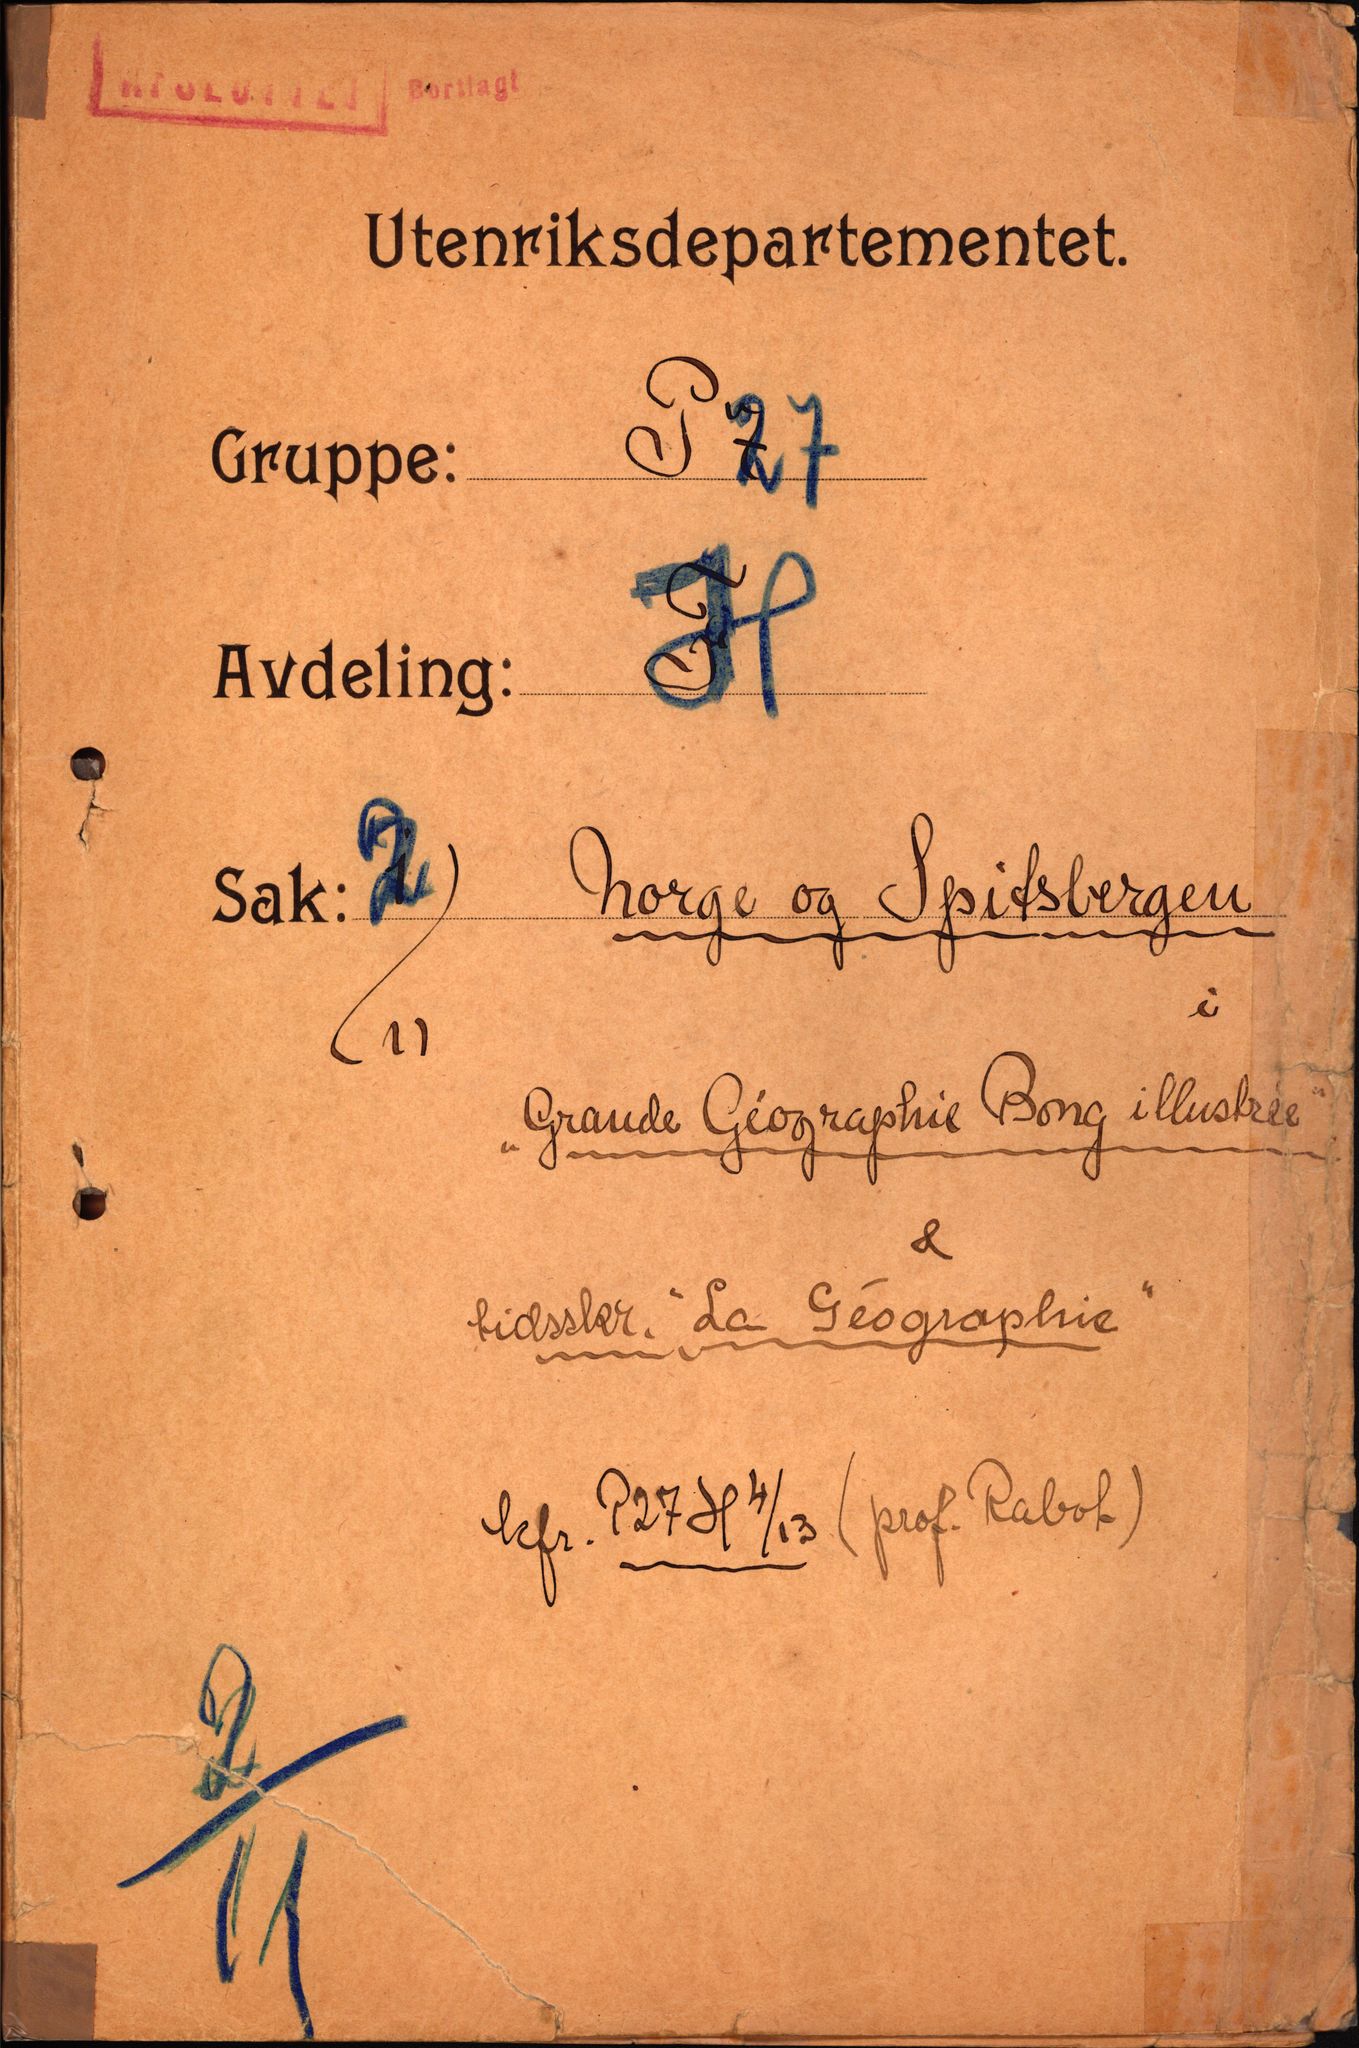 AFSLUTTET Bortlagt
Utenriksdepartementet.
Gruppe: P 27
Avdeling: H
Sak: 2/11 Norge og Spitsbergen
i
"Grande Géographie Bong illustrée"
&
tidsskr. "La Géographie"
kfr. P27 H 4/13 (prof. Rabot)
2/11